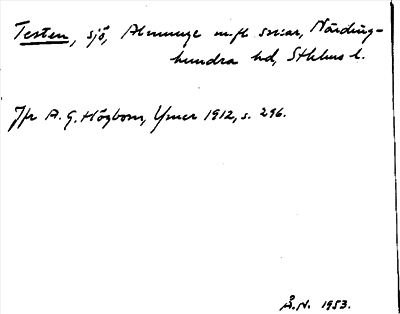 Testen, sjö, Almunge m.fl. socnar, Närding-
hundra hd, Sthlms l.
Jfr A. G. Högbom, Ymer 1912, s. 296.
Å.N. 1953.